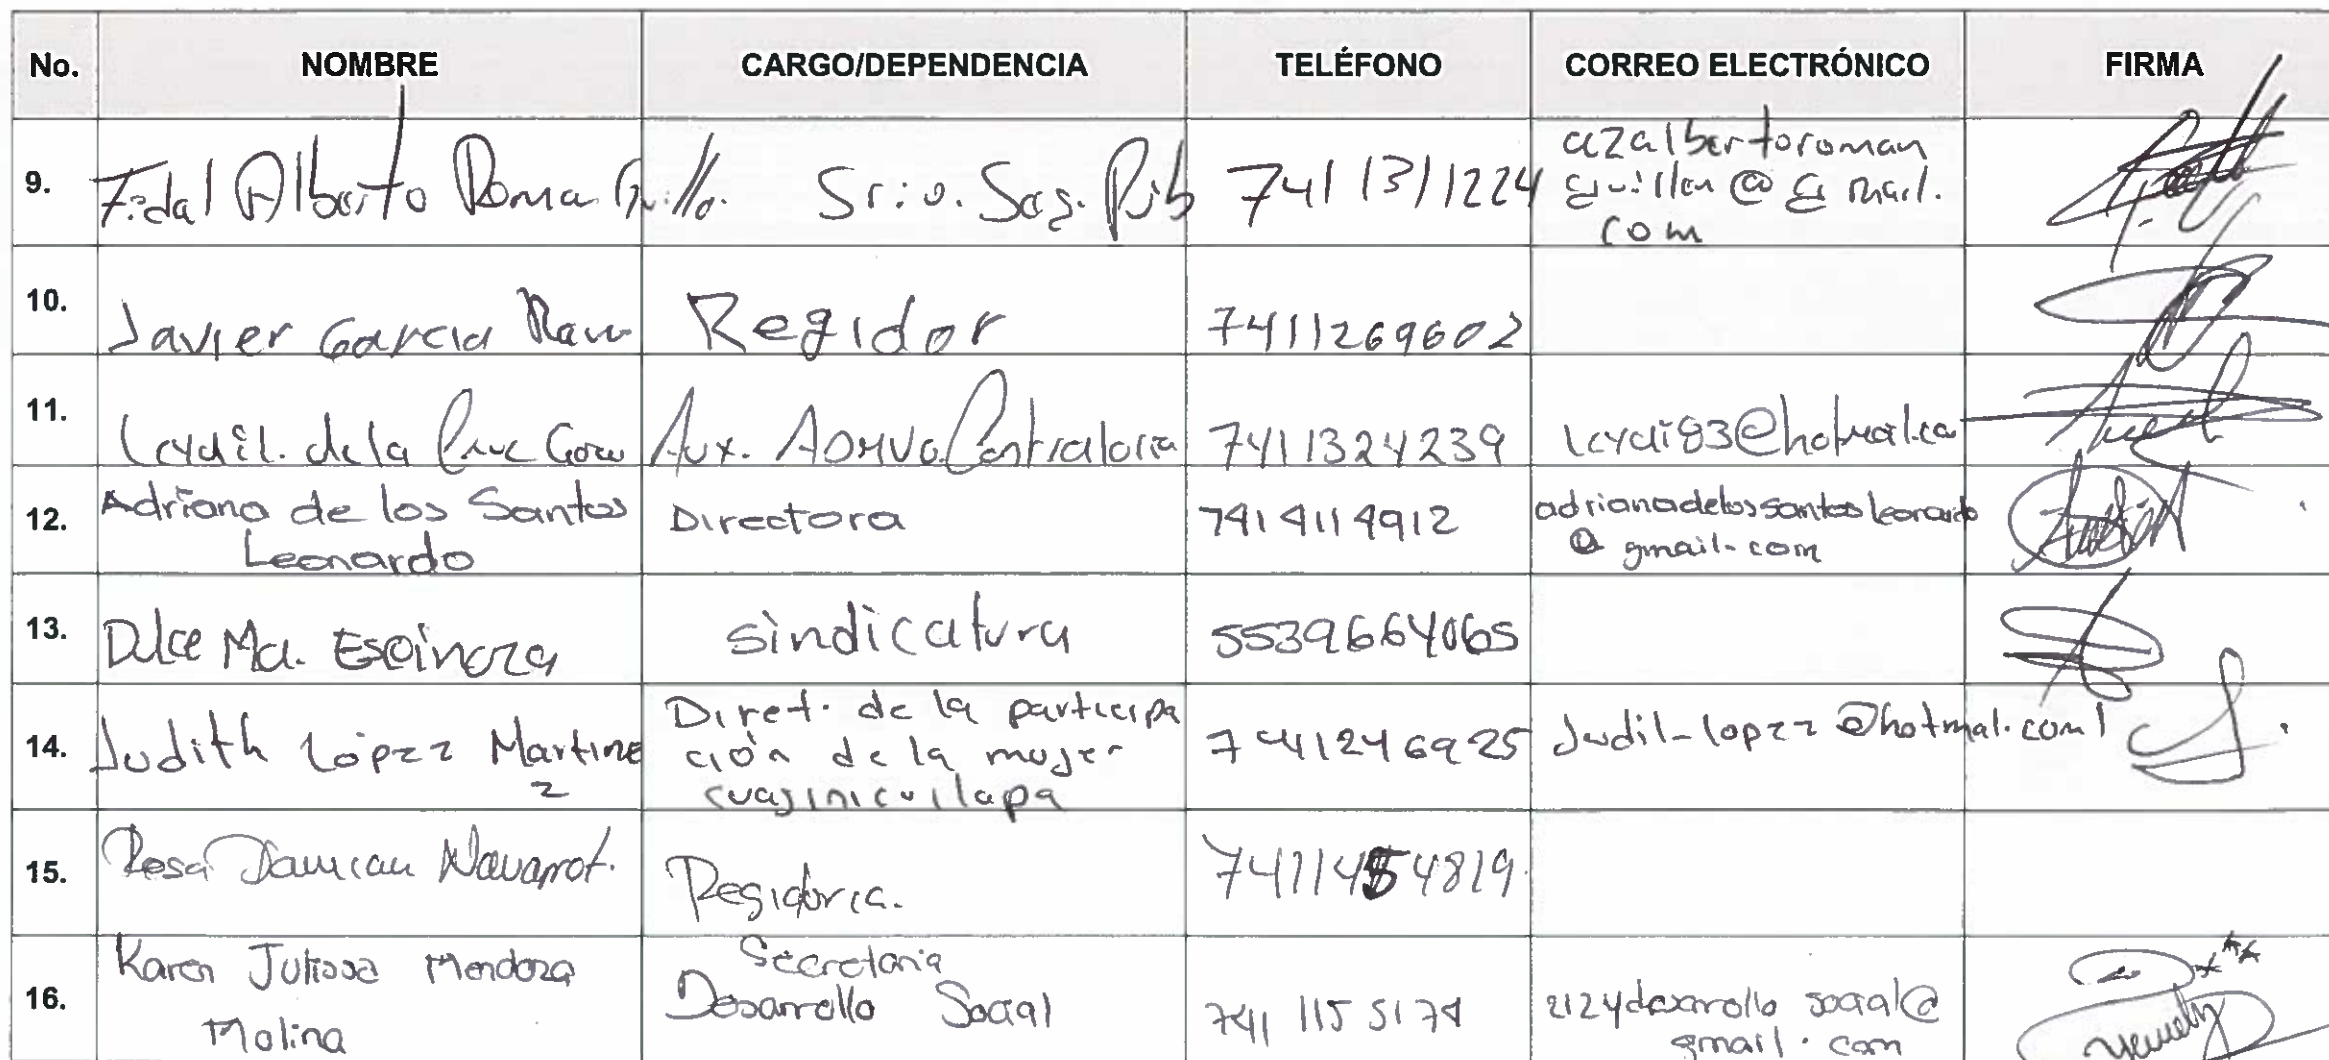 No. NOMBRE CARGO/DEPENDENCIA TELÉFONO CORREO ELECTRÓNICO FIRMA
9. Fidal Alberto Roman Guillo. Srio. Seg. Pub 7411311224 azalbertoroman
guillen@gmail.
com
10. Javier Garcia Ram Regidor 7411269602
11. de la Cruz Aux. ADMVO. Contraloria 7411324239
12. Adriana de los Santos Directora 7414114912 adrianadelossantosleonardo
Leonardo @gmail.com
13. Dulce Ma. Espinoza sindicatura 5539664065
14. Judith López Martine Diret. de la participa 741246925 Judil-lopez@hotmal.com
z ción de la mujer
cuajinicuilapa
15. Rosa Damian Navarret. Regidoria. 7411454819
16. Karen Julissa Mendoza Secretaria
Molina Desarrollo Social 741 115 5174 2124desarrollo social@
gmail.com